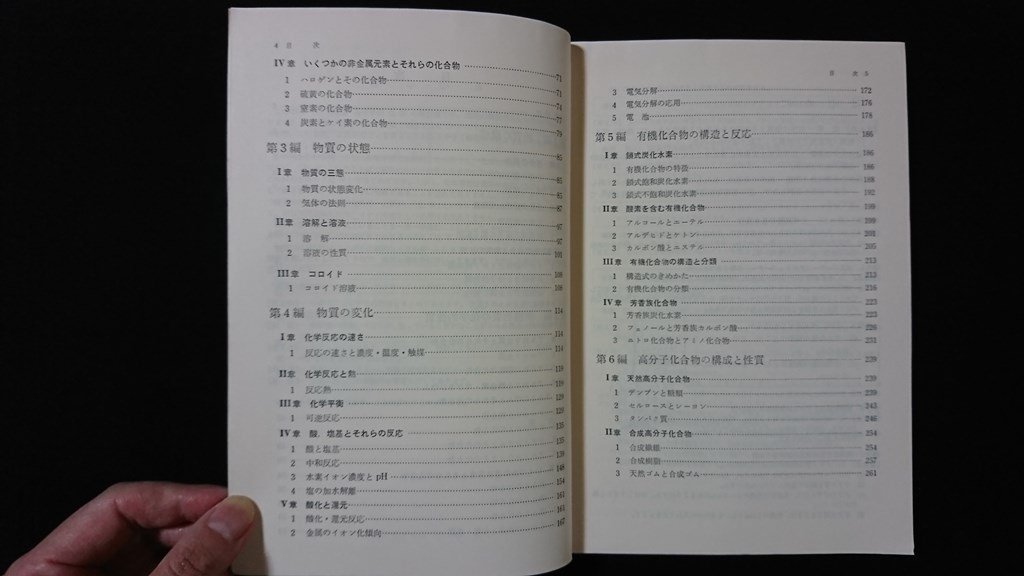 4 目 次
IV章 いくつかの非金属元素とそれらの化合物 71
1 ハロゲンとその化合物 71
2 硫黄の化合物 74
3 窒素の化合物 77
4 炭素とケイ素の化合物 79
第3編 物質の状態 85
I章 物質の三態 85
1 物質の状態変化 85
2 気体の法則 87
II章 溶解と溶液 97
1 溶 解 97
2 溶液の性質 101
III章 コロイド 108
1 コロイド溶液 108
第4編 物質の変化 114
I章 化学反応の速さ 114
1 反応の速さと濃度・温度・触媒 114
II章 化学反応と熱 119
1 反応熱 119
III章 化学平衡 129
1 可逆反応 129
IV章 酸，塩基とそれらの反応 135
1 酸と塩基 135
2 中和反応 139
3 水素イオン濃度とpH 148
4 塩の加水解離 154
V章 酸化と還元 161
1 酸化・還元反応 161
2 金属のイオン化傾向 167
目 次 5
3 電気分解 172
4 電気分解の応用 176
5 電 池 178
第5編 有機化合物の構造と反応 186
I章 鎖式炭化水素 186
1 有機化合物の特徴 186
2 鎖式飽和炭化水素 188
3 鎖式不飽和炭化水素 192
II章 酸素を含む有機化合物 199
1 アルコールとエーテル 199
2 アルデヒドとケトン 201
3 カルボン酸とエステル 205
III章 有機化合物の構造と分類 213
1 構造式のきめかた 213
2 有機化合物の分類 216
IV章 芳香族化合物 223
1 芳香族炭化水素 223
2 フェノールと芳香族カルボン酸 226
3 ニトロ化合物とアミノ化合物 231
第6編 高分子化合物の構成と性質 239
I章 天然高分子化合物 239
1 デンプンと糖類 239
2 セルロースとレーヨン 243
3 タンパク質 246
II章 合成高分子化合物 254
1 合成繊維 254
2 合成樹脂 257
3 天然ゴムと合成ゴム 261